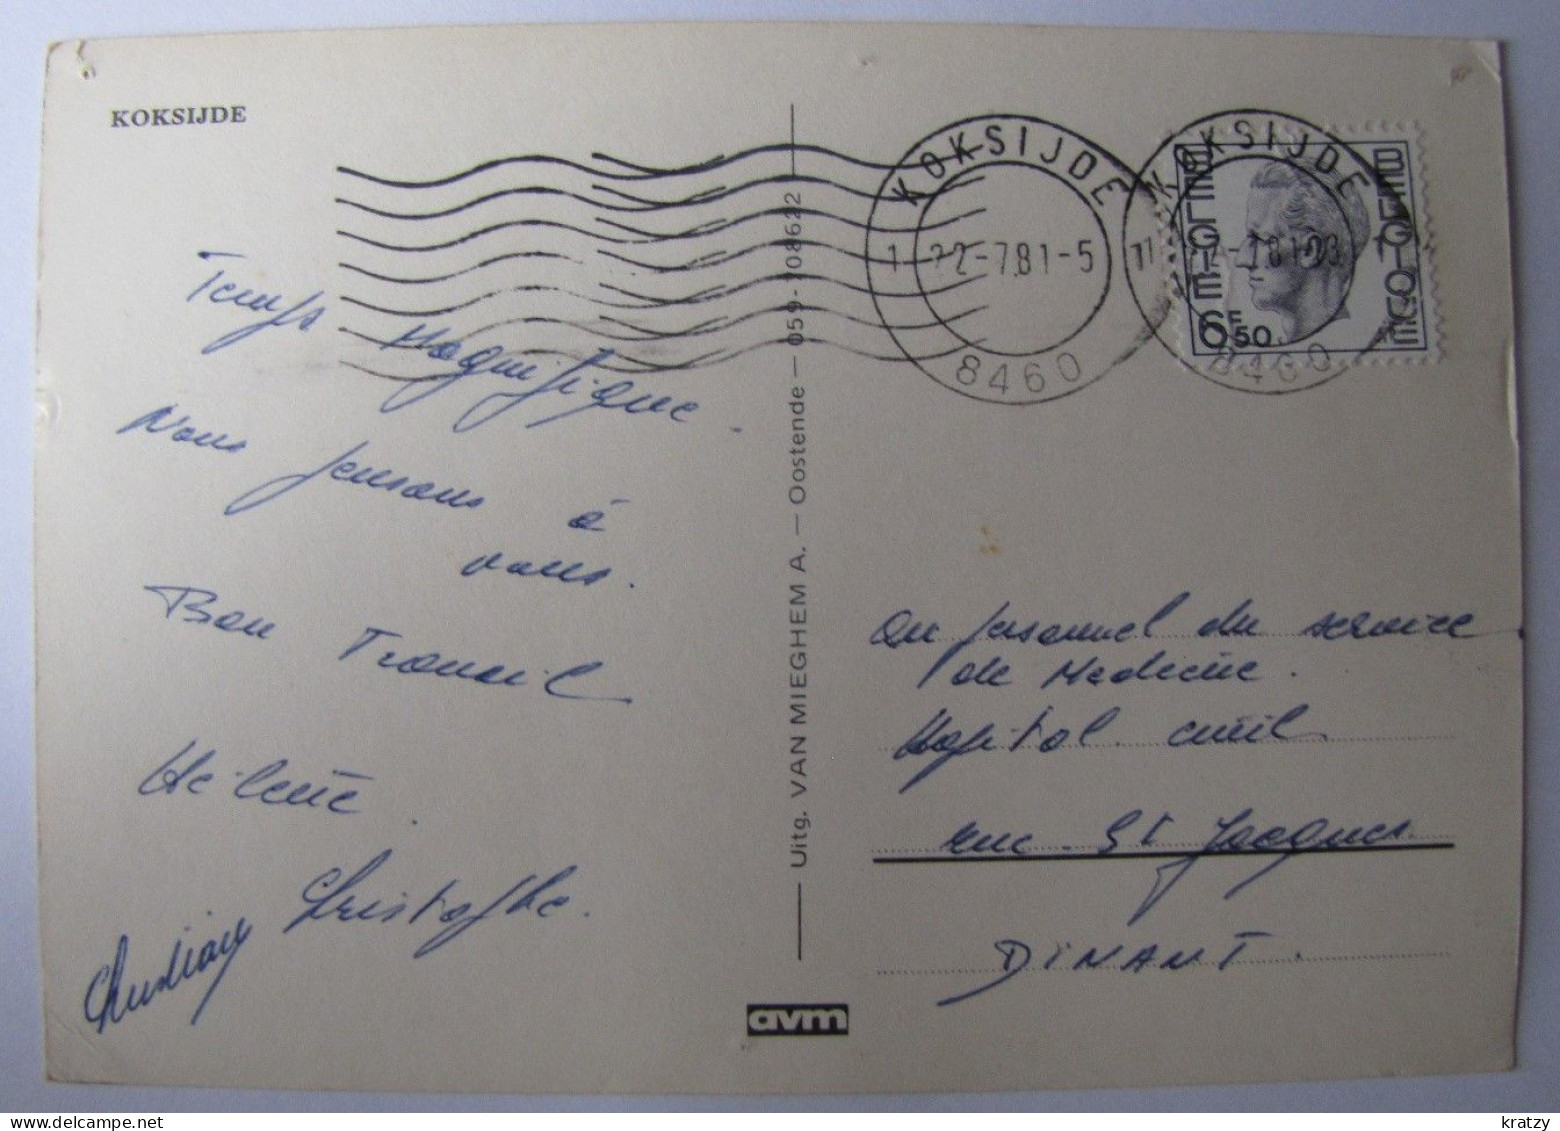 KOKSIJDE
Temps Magnifique.
Nous pensons à
vous.
Bon Travail
Christophe.
Uitg. VAN MIEGHEM A. — Oostende — 059-708622
avm
KOKSIJDE
1 22-7.81-5
8460
KOKSIJDE
8460
BELGIE
BELGIQUE
6F50
Au personnel du service
de Medecine.
Hopital civil
rue St Jacques.
DINANT.
kratzy